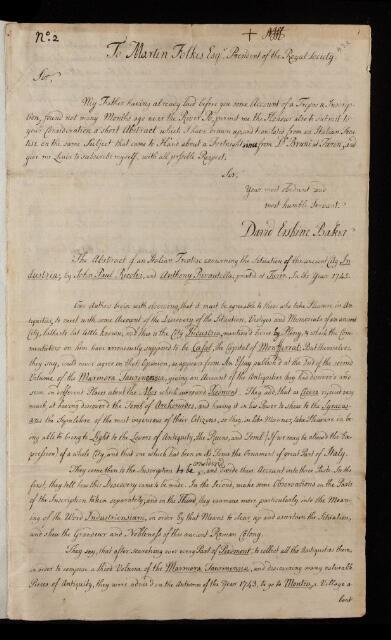 No. 2
To Martin Folkes Esqr. President of the Royal Society.
Sir,
My Father having already laid before you some Account of a Tripos & Inscrip-
tion, found not many Months ago near the River Po, permit me the Honour also to submit to
your Consideration a short Abstract which I have drawn up and translated from an Italian Trea-
tise on the same Subject that came to Hand about a Fortnight since from Dr. Bruni at Turin, and
give me Leave to subscribe myself, with all possible Respect,
Sir,
Your most obedient and
most humble Servant.
David Erskine Baker
The Abstract of an Italian Treatise concerning the Situation of the ancient City In-
dustria; by John Paul Ricolvi, and Anthony Rivautella; printed at Turin in the Year 1745.
Our Authors begin with observing, that it must be agreeable to those who take Pleasure in An-
tiquities, to meet with some Account of the Discovery of the Situation, Vestiges and Memorials of an ancient
City, hitherto but little known; and this is the City Industria, mention'd twice by Pliny, to which the Com-
mentators on him have erroneously supposed to be Casal, the Capital of Montferrat. But themselves,
they say, could never agree in that Opinion, as appears from an Essay publish'd at the End of the second
Volume of the Marmora Taurinensia, giving an Account of the Antiquities they had discover'd and
seen in different Places about the Alps which surround Piedmont. They add, that as Cicero rejoiced very
much at having discover'd the Tomb of Archimedes, and having it in his Power to shew to the Syracu-
sans the Sepulchre of the most ingenious of their Citizens, so they, in like Manner, take Pleasure in be-
ing able to bring to Light to the Lovers of Antiquity, the Ruins, and Tomb (If we may be allowed the Ex-
pression) of a whole City, and that one which has been in its Time the Ornament of great Part of Italy.
They come then to the Inscription to be considered, and divide their Account into three Parts. In the
first, they tell how this Discovery came to be made. In the second, make some Observations on the Parts
of the Inscription taken separately; and in the Third, they examine more particularly into the Mean-
ing of the Word Industriensium, in order by that Means to clear up and ascertain the Situation,
and shew the Grandeur and Nobleness of this ancient Roman Colony.
They say, that after searching over every Part of Piedmont, to collect all the Antiquities there,
in order to compose a third Volume of the Marmora Taurinensia, and discovering many valuable
Pieces of Antiquity, they were advised in the Autumn of the Year 1743, to go to Monteu, a Village a-
bout